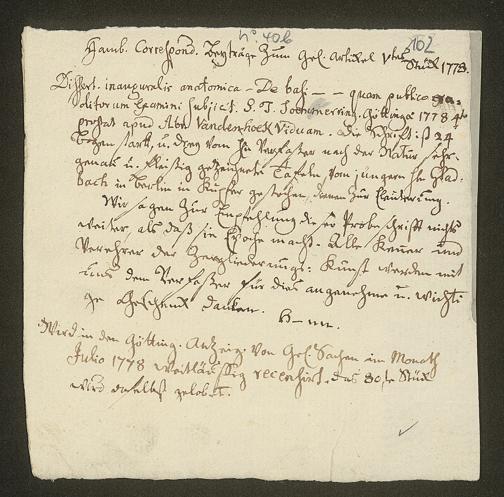 No 40b
102
Hamb. Correspond. Beyträge Zum Gel. Artikel Vtes Stück 1778.
Dissert. inauguralis anatomica – De basi – – quam publico
ditorum Examini subjicit. S. T. Soemmerring. Göttingae 1778 4to
prostat apud Abr. Vandenhoek Viduam. Die Schrift ist 24
Bogen stark, u. drey vom Hn Verfasser nach der Natur sehr
genau u. fleissig gezeichnete Tafeln vom jüngern Hn Glas-
bach in Berlin in Kupfer gestochen, dienen zur Erläuterung.
Wir sagen zur Empfehlung dieser Probeschrift nichts
weiter, als daß sie Epoche macht. Alle Kenner und
Verehrer der Zergliederungs-Kunst werden mit
uns dem Verfasser für dies angenehme u. wichti-
ge Geschenk danken. H–nn.
Wird in den Götting. Anzeig. von Gel. Sachen im Monath
Julio 1778 weitläuffig recensirt. das 80ste Stück
wird daselbst gelobet.